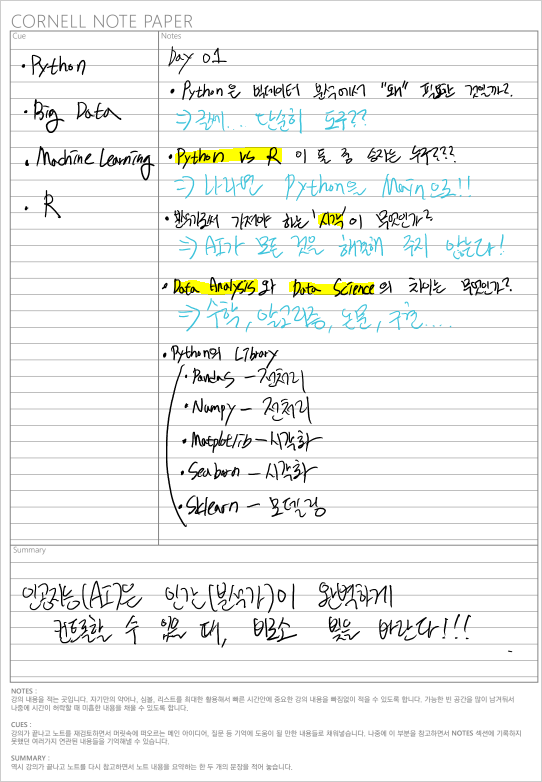 CORNELL NOTE PAPER
Cue
Notes
• Python
• Big Data
• Machine Learning
• R
Day 01
• Python은 빅데이터 분석에서 "왜" 필요한 것일까?.
⇒ 글쎄... 단순히 도구??
• Python vs R 이 둘 중 승자는 누구???
⇒ 나라면 Python을 Main으로!!
• 분석가로서 가져야 하는 '시각'이 무엇인가?
⇒ AI가 모든 것을 해결해 주지 않는다!
• Data Analysis와 Data Science의 차이는 무엇인가?.
⇒ 수학, 알고리즘, 논문, 구현....
• Python의 Library
• Pandas – 전처리
• Numpy – 전처리
• Matplotlib – 시각화
• Seaborn – 시각화
• Sklearn – 모델링
Summary
인공지능(AI)은 인간(분석가)이 완벽하게
컨트롤할 수 있을 때, 비로소 빛을 바란다!!!
NOTES :
강의 내용을 적는 곳입니다. 자기만의 약어나, 심볼, 리스트를 최대한 활용해서 빠른 시간안에 중요한 강의 내용을 빠짐없이 적을 수 있도록 합니다. 가능한 빈 공간을 많이 남겨둬서
나중에 시간이 허락할 때 미흡한 내용을 채울 수 있도록 합니다.
CUES :
강의가 끝나고 노트를 재검토하면서 머릿속에 떠오르는 메인 아이디어, 질문 등 기억에 도움이 될 만한 내용들로 채워넣습니다. 나중에 이 부분을 참고하면서 NOTES 섹션에 기록하지
못했던 여러가지 연관된 내용들을 기억해낼 수 있습니다.
SUMMARY :
역시 강의가 끝나고 노트를 다시 참고하면서 노트 내용을 요약하는 한 두 개의 문장을 적어 놓습니다.